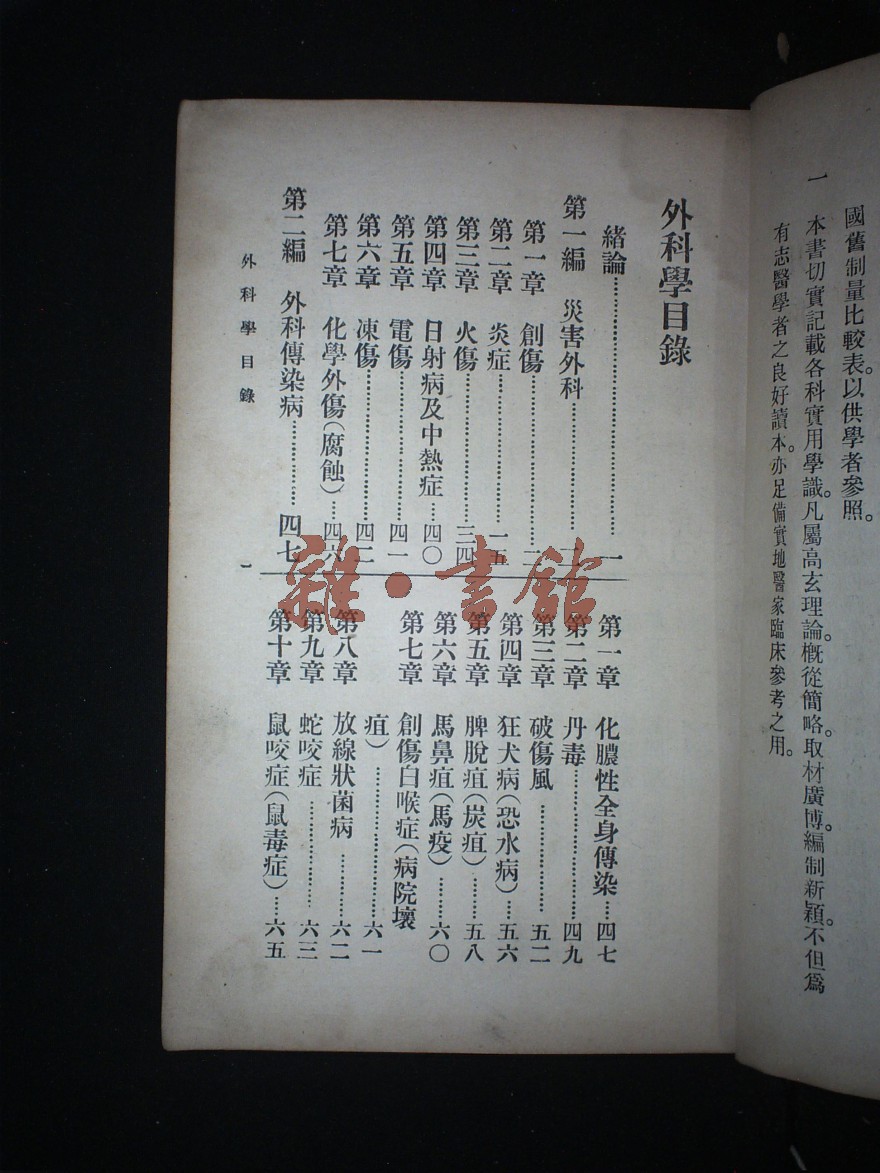 國舊制量比較表。以供學者參照。
一　本書切實記載各科實用學識。凡屬高玄理論。概從簡略。取材廣博。編制新穎。不但爲
有志醫學者之良好讀本。亦足備實地醫家臨床參考之用。
外科學目錄
緒論……………………一
第一編　災害外科…………
第一章　創傷…………
第二章　炎症…………一五
第三章　火傷…………三四
第四章　日射病及中熱症…四〇
第五章　電傷…………四一
第六章　凍傷…………四二
第七章　化學外傷(腐蝕)…四六
第二編　外科傳染病………四七
第一章　化膿性全身傳染…四七
第二章　丹毒…………四九
第三章　破傷風…………五二
第四章　狂犬病(恐水病)…五六
第五章　脾脫疽(炭疽)……五八
第六章　馬鼻疽(馬疫)……六〇
第七章　創傷白喉症(病院壞
疽)……………六一
第八章　放線狀菌病………六二
第九章　蛇咬症…………六三
第十章　鼠咬症(鼠毒症)…六五
外科學目錄
一
雜·書館